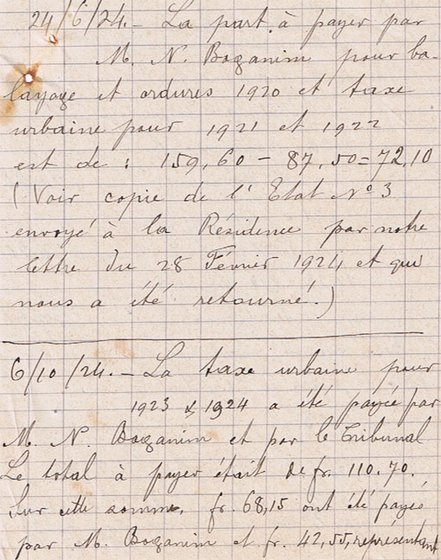 24/6/24.- La part à payer par
M. N. Boganim pour ba-
layage et ordures 1920 et taxe
urbaine pour 1921 et 1922
est de : 159,60 - 87,50 = 72,10
(Voir copie de l'Etat No 3
envoyé à la Résidence par notre
lettre du 28 Février 1924 et qui
nous a été retourné.)
6/10/24.- La taxe urbaine pour
1923 & 1924 a été payée par
M. N. Boganim et par le Tribunal
Le total à payer était de fr. 110.70.
Sur cette somme, fr. 68,15 ont été payés
par M. Boganim et fr. 42,55, représentant